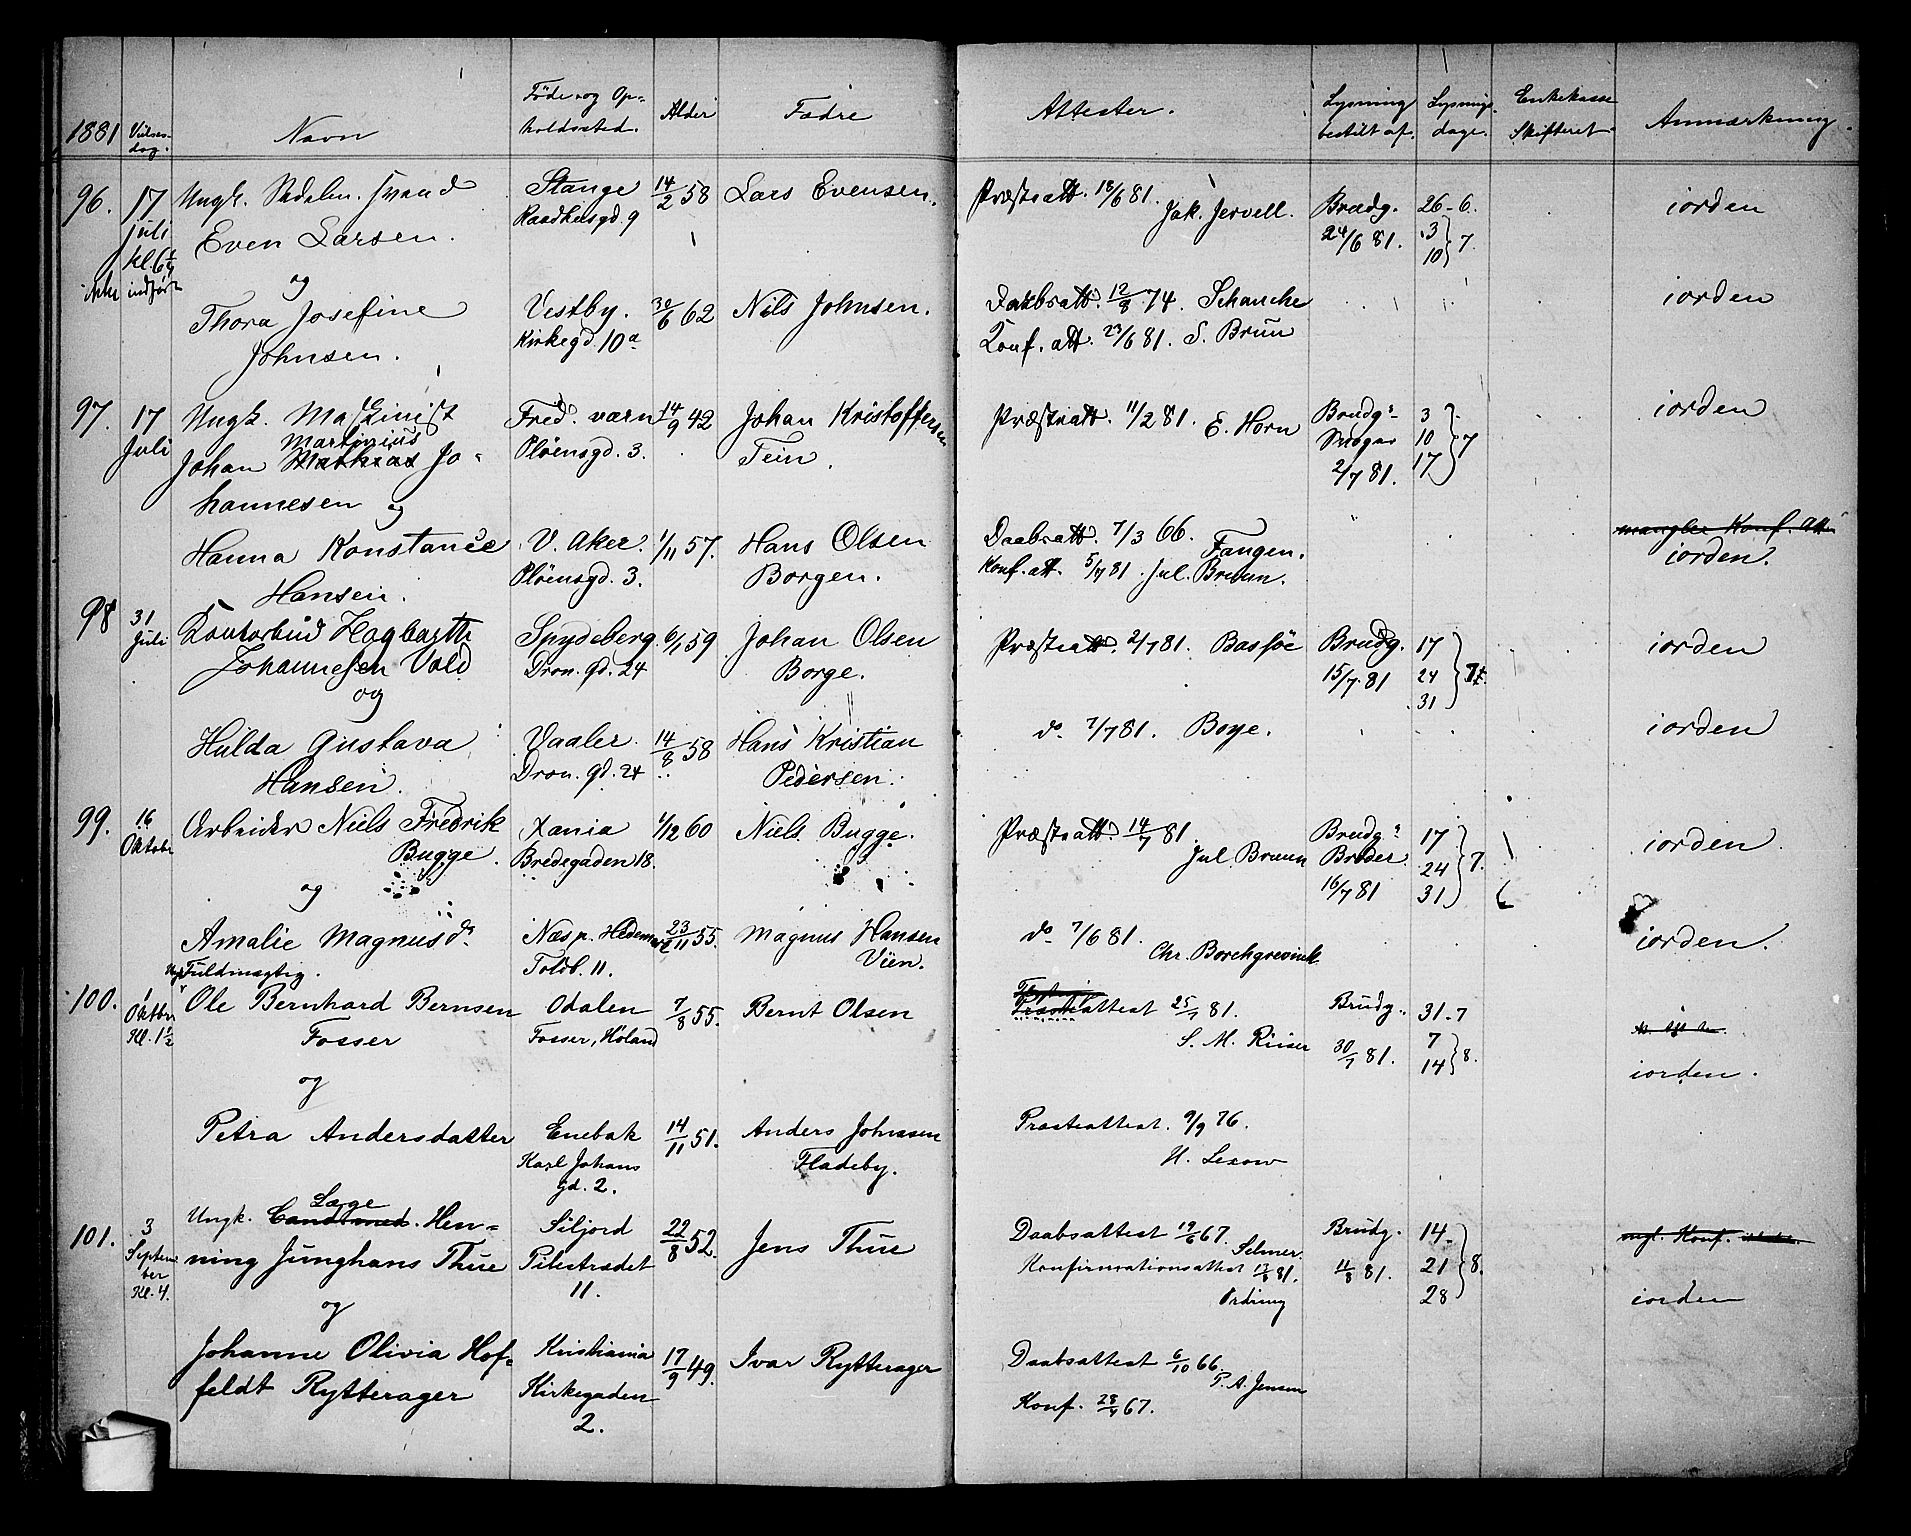 1881 Vielses-dag. Navn Føde- og Op-holdssted. Alder Fædre Attester. Lysning bestilt af. Lysnings-dage. Enkekasse Skifteret Anmærkning.
96. 17 juli kl. 6 ikke indført
Ungk. svend
Even Larsen.
Stange
Raadhusgd 9
14/2 58
Lars Evensen.
Præsteatt. 18/6 81.
Jak. Jervell.
Brudg.
24/6 81.
26-6.
3
10 } 7.
iorden
og
Thora Josefine
Johnsen.
Vestby.
Kirkegd. 10a
30/6 62
Nils Johnsen.
Daabsatt. 12/8 74. Schanche
Konf. att. 23/6 81. S. Bruun
iorden
97. 17 Juli
Ungk. Maskinist
Martinius
Johan Mathias Jo-
hannesen og
Fred.værn
Pløensgd. 3.
14/9 42
Johan Kristoffersen
Tein.
Præsteatt. 11/2 81. E. Horn
Brudgs
Svoger
2/7 81.
3
10
17 } 7
iorden
Hanna Konstance
Hansen.
V. Aker.
Pløensgd. 3.
1/11 57.
Hans Olsen
Borgen.
Daabsatt. 7/3 66. Fangen.
Konf. att. 5/7 81. Jul. Bruun.
mangler Konf. att
iorden.
98 31 Juli
Kontorbud Hagbarth
Johannesen Vold
og
Spydeberg.
Dron. gd. 24
6/1 59
Johan Olsen
Borge.
Præsteatt. 2/7 81. Bassøe
Brudg.
15/7 81
17
24
31 } 7.
iorden
Hulda Gustava
Hansen.
Vaaler.
Dron. gd. 24
14/8 58
Hans Kristian
Pedersen.
do. 7/7 81. Boye.
iorden
99. 16 Oktober
Arbeider Niels Fredrik
Bugge.
og
Xania
Bredegaden 18.
1/12 60
Niels Bugge.
Præsteatt. 14/7 81.
Jul Bruun
Brudgs
Broder
16/7 81
17
24
31 } 7.
iorden.
Amalie Magnusd.
Næs p. Hedemark
Toldb. 11.
23/11 55.
Magnus Hansen
Vien.
do. 7/6 81.
Chr. Borchgrevink
iorden.
100. 1 Oktbr Kl. 1 1/2
Ungk Fuldmægtig.
Ole Bernhard Bernsen
Fosser
og
Odalen
Fosser, Høland
7/8 55.
Bernt Olsen
Præsteattest 25/7 81.
S. M. Riiser
Brudg.
30/7 81.
31-7
7
14 } 8.
iorden.
Petra Andersdatter
Enebak
Karl Johans
gd. 2.
14/11 51.
Anders Johnsen
Fladeby.
Præsteattest. 9/9 76.
H. Lexow
101. 3 September Kl. 4.
Læge
Ungk. Cand. med. Hen-
ning Junghans Thue
og
Siljord
Pilestrædet
11.
22/8 52.
Jens Thue
Daabsattest 19/6 67.
Selmer.
Konfirmationsattest 17/8 81.
Ording
Brudg.
11/8 81.
14.
21
28 } 8.
mgl. Konf. attest.
iorden
Johanne Olivia Hof-
feldt Rytterager
Kristiania
Kirkegaden
2.
17/9 49.
Ivar Rytterager
Daabsattest 6/10 66.
P. A. Jensen
Konf. 28/4 67.